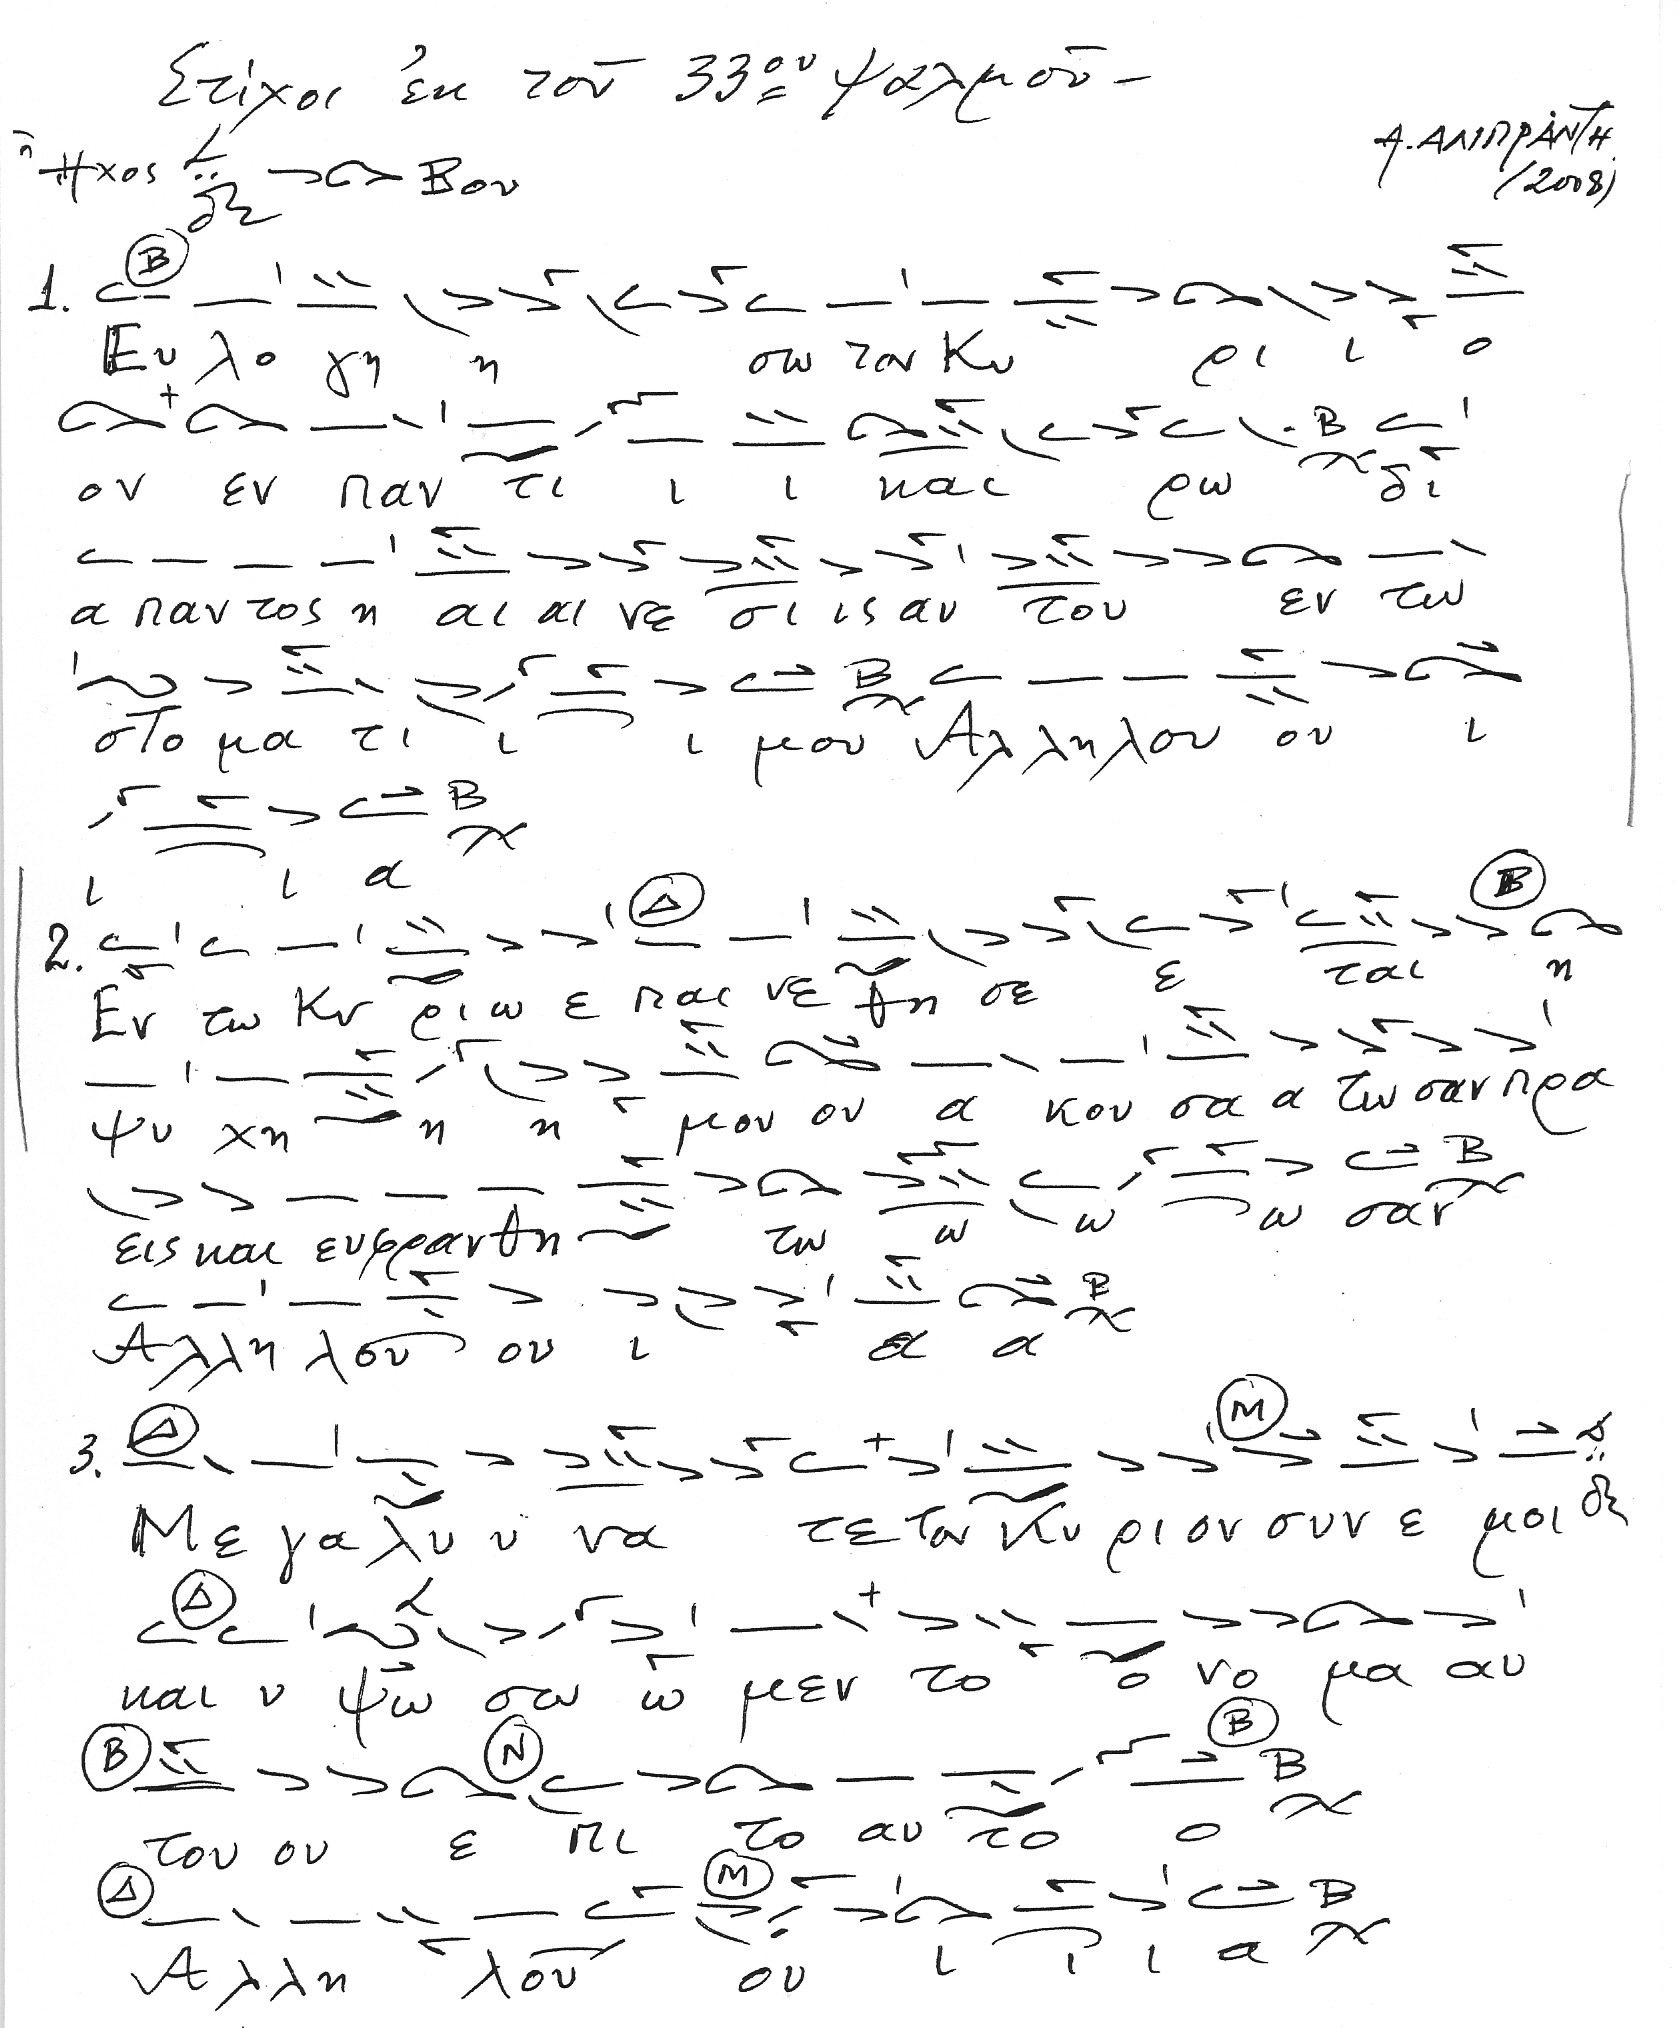 Στίχοι ἐκ τοῦ 33ου ψαλμοῦ -
Α. ΑΛΙΠΡΑΝΤΗ
(2008)
Ἦχος Βου
Β
1.
Ευ λο γη η σω τον Κυ ρι ι ο
Β
ον εν παν τι ι ι και ρω δι
α παν τος η αι αι νε σι ις αυ του εν τω
Β
στο μα τι ι ι μου Αλληλου ου ι
Β
ι ι α
Δ Β
2.
Εν τω Κυ ρι ω ε παι νε θη σε ε ται η
ψυ χη η η μου ου α κου σα α τω σαν πρα
Β
εις και ευφρανθη τω ω ω ω σαν
Β
Αλλη λου ου ι α α
Δ Μ
3.
Με γα λυ υ να τε τον Κυ ρι ον συν ε μοι
Δ
και υ ψω σω ω μεν το ο νο μα αυ
Β Ν Β Β
του ου ε πι το αυ το ο
Δ Μ Β
Αλλη λου ου ι ι ι α